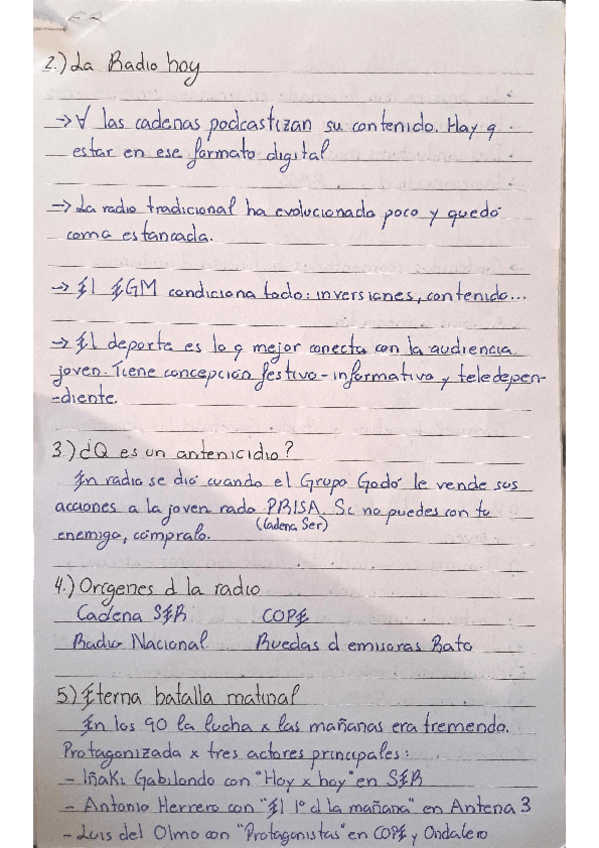 2.) La Radio hoy
→ ∀ las cadenas podcastizan su contenido. Hay q
estar en ese formato digital
→ La radio tradicional ha evolucionado poco y quedó
como estancada.
→ El EGM condiciona todo: inversiones, contenido...
→ El deporte es lo q mejor conecta con la audiencia
joven. Tiene concepción festivo-informativa y teledepen-
-diente.
3.) ¿Q es un antenicidio?
En radio se dió cuando el Grupo Godó le vende sus
acciones a la joven rado PRISA. Si no puedes con tu
(Cadena Ser)
enemigo, cómpralo.
4.) Orígenes d la radio
Cadena SER COPE
Radio Nacional Ruedas d emisoras Rato
5) Eterna batalla matinal
En los 90 la lucha x las mañanas era tremenda.
Protagonizada x tres actores principales:
- Iñaki Gabilondo con "Hoy x hoy" en SER
- Antonio Herrero con "El 1º d la mañana" en Antena 3
- Luis del Olmo con "Protagonistas" en COPE y Ondacero